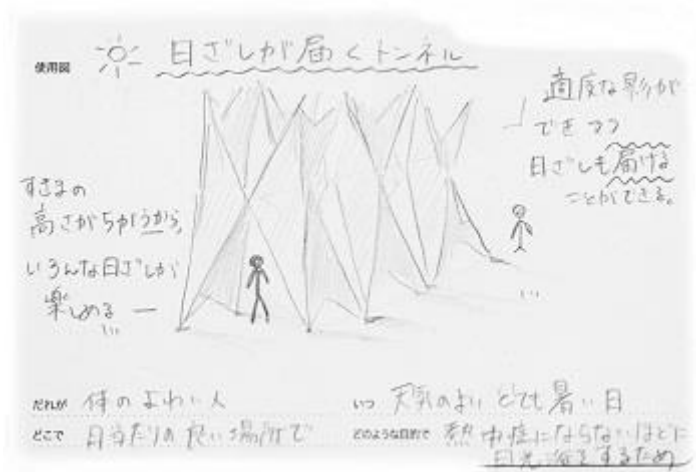 使用図
日ざしが届くトンネル
適度な影が
できつつ
日ざしも届ける
ことができる。
すきまの
高さがちがうから、
いろんな日ざしが
楽しめる
だれが 体のよわい人
いつ 天気のよい とても暑い日
どこで 日当たりの良い場所で
どのような目的で 熱中症にならないほどに
日光浴をするため